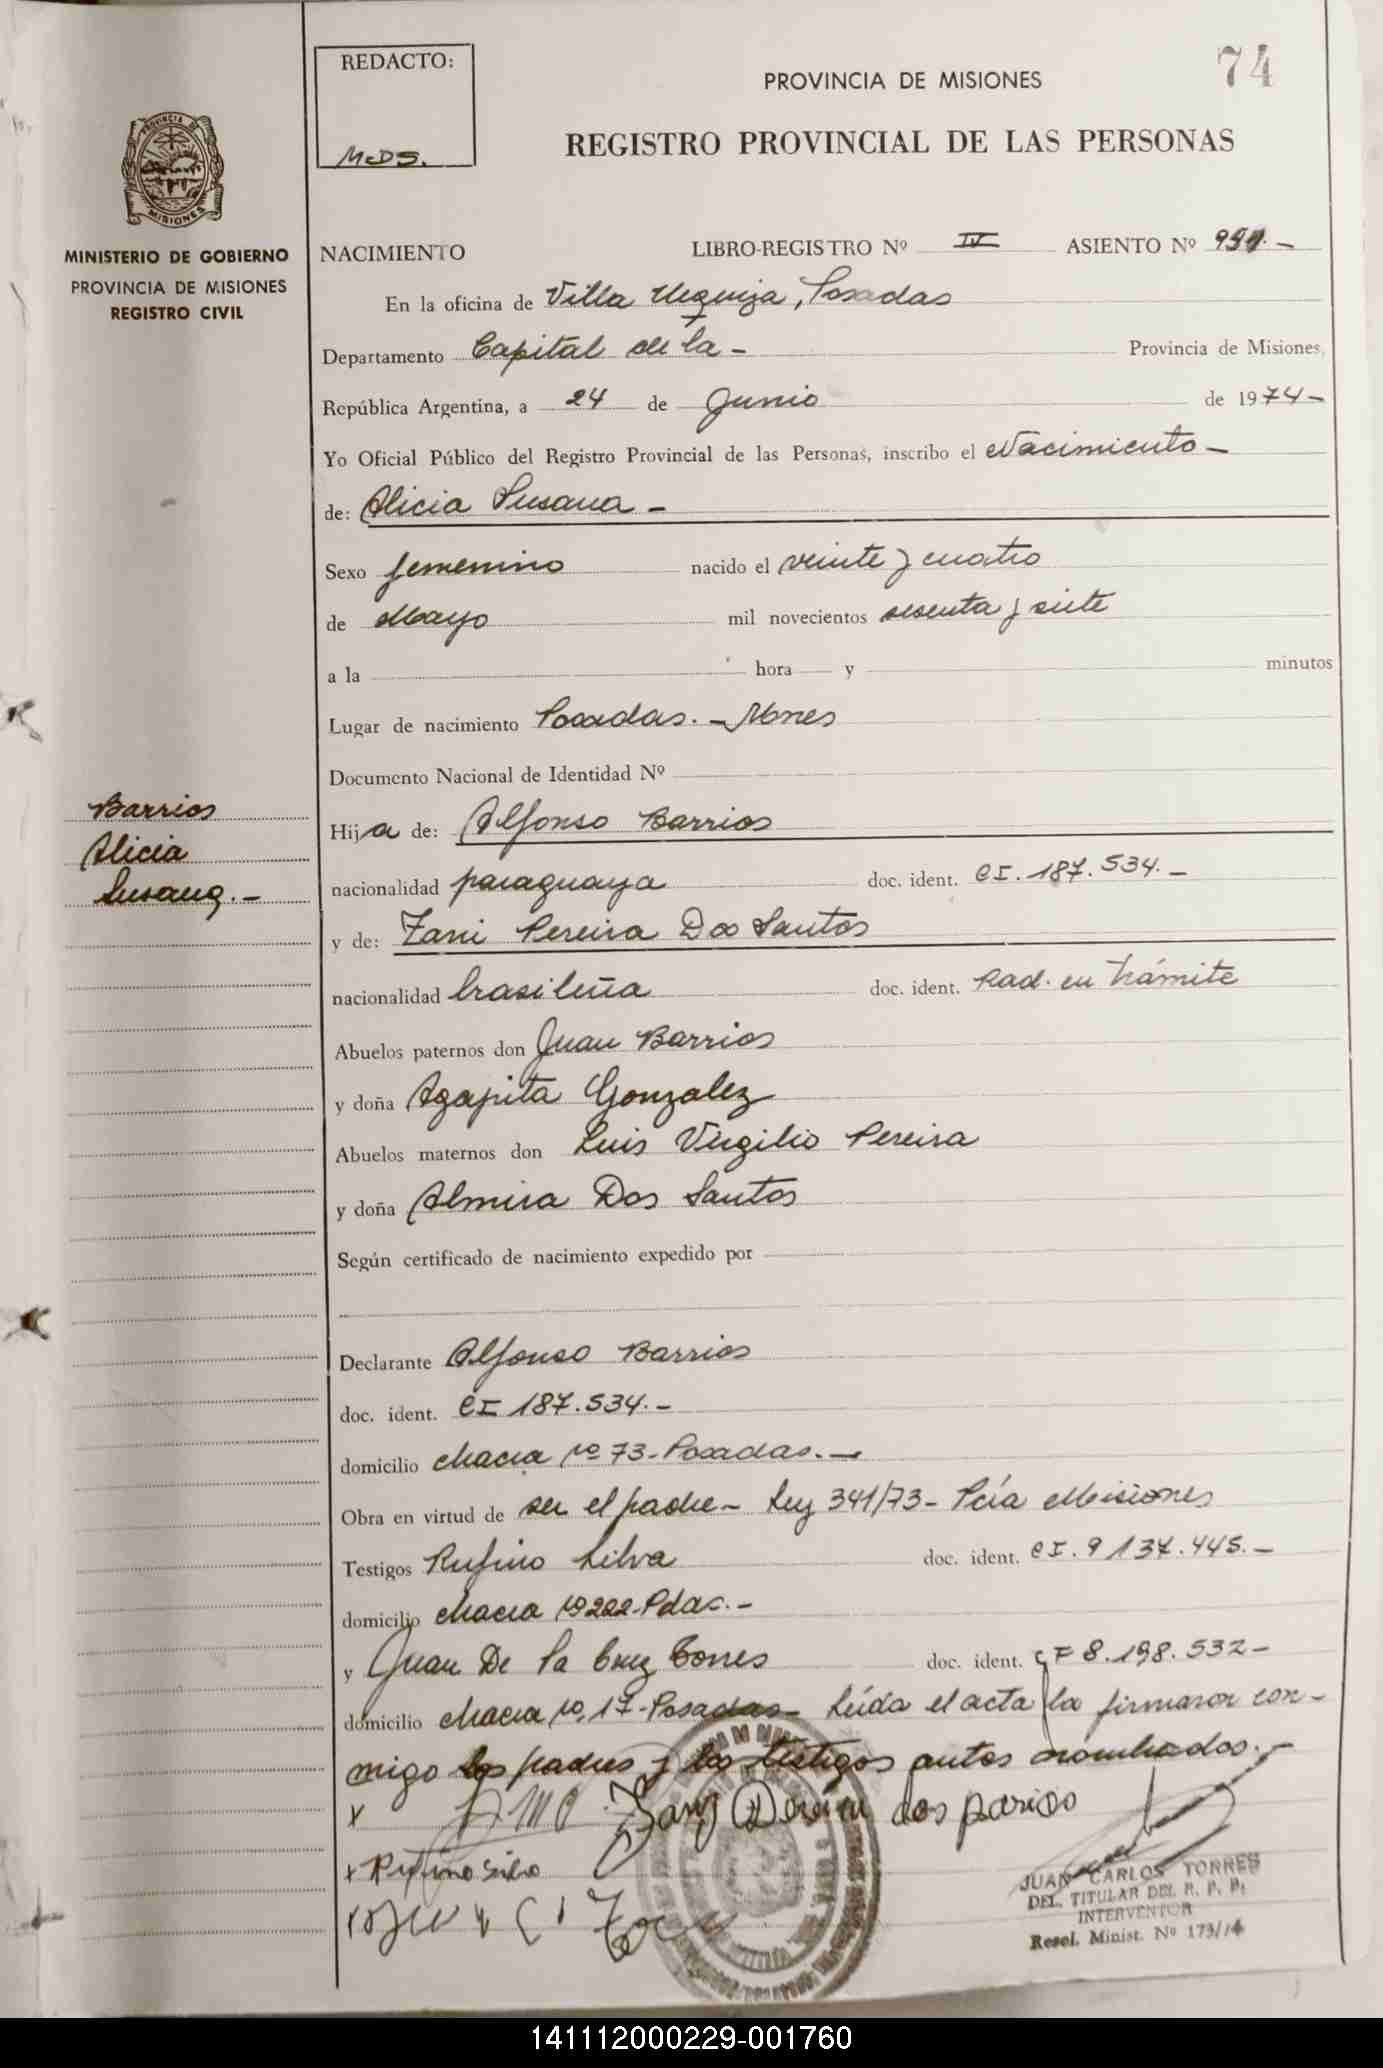 REDACTO:
McDS.
PROVINCIA DE MISIONES
74
REGISTRO PROVINCIAL DE LAS PERSONAS
MINISTERIO DE GOBIERNO
PROVINCIA DE MISIONES
REGISTRO CIVIL
NACIMIENTO LIBRO-REGISTRO Nº IV ASIENTO Nº
En la oficina de Villa Urquiza, Posadas
Departamento Capital de la - Provincia de Misiones,
República Argentina, a 24 de Junio de 1974-
Yo Oficial Público del Registro Provincial de las Personas, inscribo el Nacimiento-
de: Alicia Susana -
Sexo femenino nacido el veinte y cuatro
de Mayo mil novecientos sesenta y siete
a la hora y minutos
Lugar de nacimiento Posadas. - Mnes
Documento Nacional de Identidad Nº
Barrios
Alicia
Susana.-
Hija de: Alfonso Barrios
nacionalidad paraguaya doc. ident. CI. 187.534. -
y de: Zani Pereira Dos Santos
nacionalidad brasileña doc. ident. Rad. en trámite
Abuelos paternos don Juan Barrios
y doña Agapita Gonzalez
Abuelos maternos don Luis Virgilio Pereira
y doña Almira Dos Santos
Según certificado de nacimiento expedido por
Declarante Alfonso Barrios
doc. ident. CI 187.534.-
domicilio chacra Nº 73-Posadas.-
Obra en virtud de ser el padre- Ley 341/73- Pcía Misiones
Testigos Rufino Silva doc. ident. CI. 9 137.445.-
domicilio chacra Nº 222-Pdas.-
y Juan De la Cruz Torres doc. ident. 8.198.532-
domicilio chacra Nº 17-Posadas- Leída el acta la firmaron con-
migo los padres y los testigos antes nombrados.-
x
x Rufino Silva
JUAN CARLOS TORRES
DEL. TITULAR DEL R. P. P.
INTERVENTOR
Resol. Minist. Nº 173/74
141112000229-001760